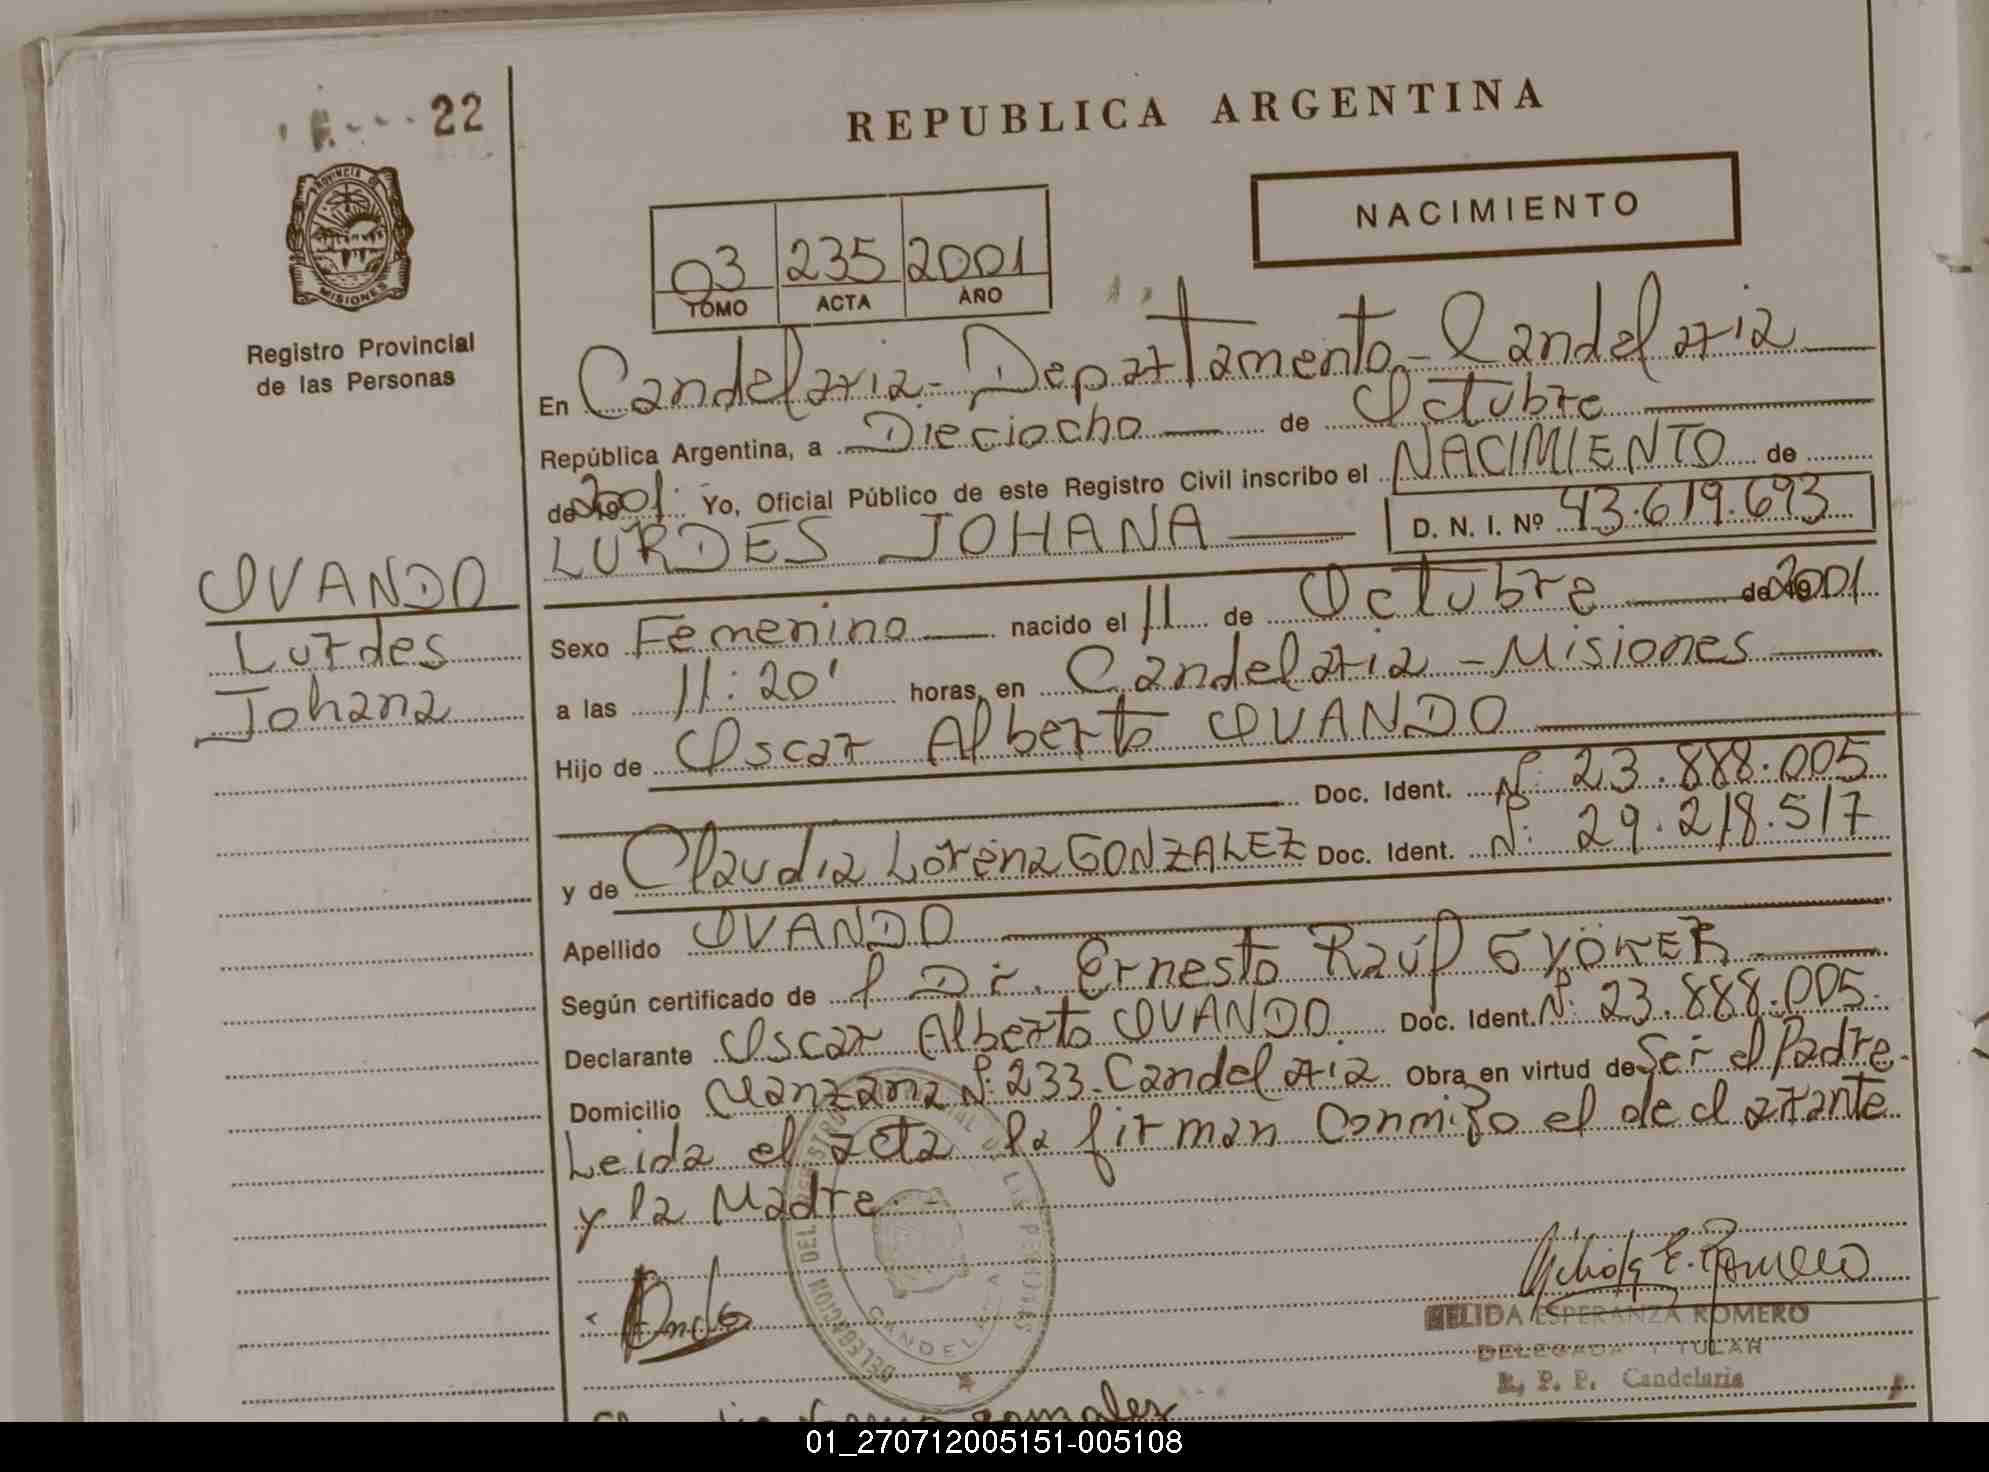 22
REPUBLICA ARGENTINA
PROVINCIA DE
MISIONES
NACIMIENTO
03 235 2001
TOMO ACTA AÑO
Registro Provincial
de las Personas
En Candelaria - Departamento - Candelaria
República Argentina, a Dieciocho de Octubre
de 2001. Yo, Oficial Público de este Registro Civil inscribo el NACIMIENTO de
LURDES JOHANA D. N. I. Nº 43.619.693
OVANDO
Lurdes
Johana
Sexo Femenino nacido el 11 de Octubre de 2001
a las 11:20' horas, en Candelaria - Misiones
Hijo de Oscar Alberto OVANDO
Doc. Ident. Nº: 23.888.005
y de Claudia Lorena GONZALEZ Doc. Ident. Nº: 29.218.517
Apellido OVANDO
Según certificado de l Dr. Ernesto Raúl GYÖKER
Declarante Oscar Alberto OVANDO Doc. Ident. Nº: 23.888.005.
Domicilio Manzana Nº: 233. Candelaria Obra en virtud de Ser el Padre.
Leida el acta la firman conmigo el declarante
y la Madre. -
DELEGACION DEL REGISTRO PROVINCIAL DE LAS PERSONAS
CANDELARIA
NELIDA ESPERANZA ROMERO
DELEGADA TITULAR
R. P. P. Candelaria
gonzalez
01_270712005151-005108